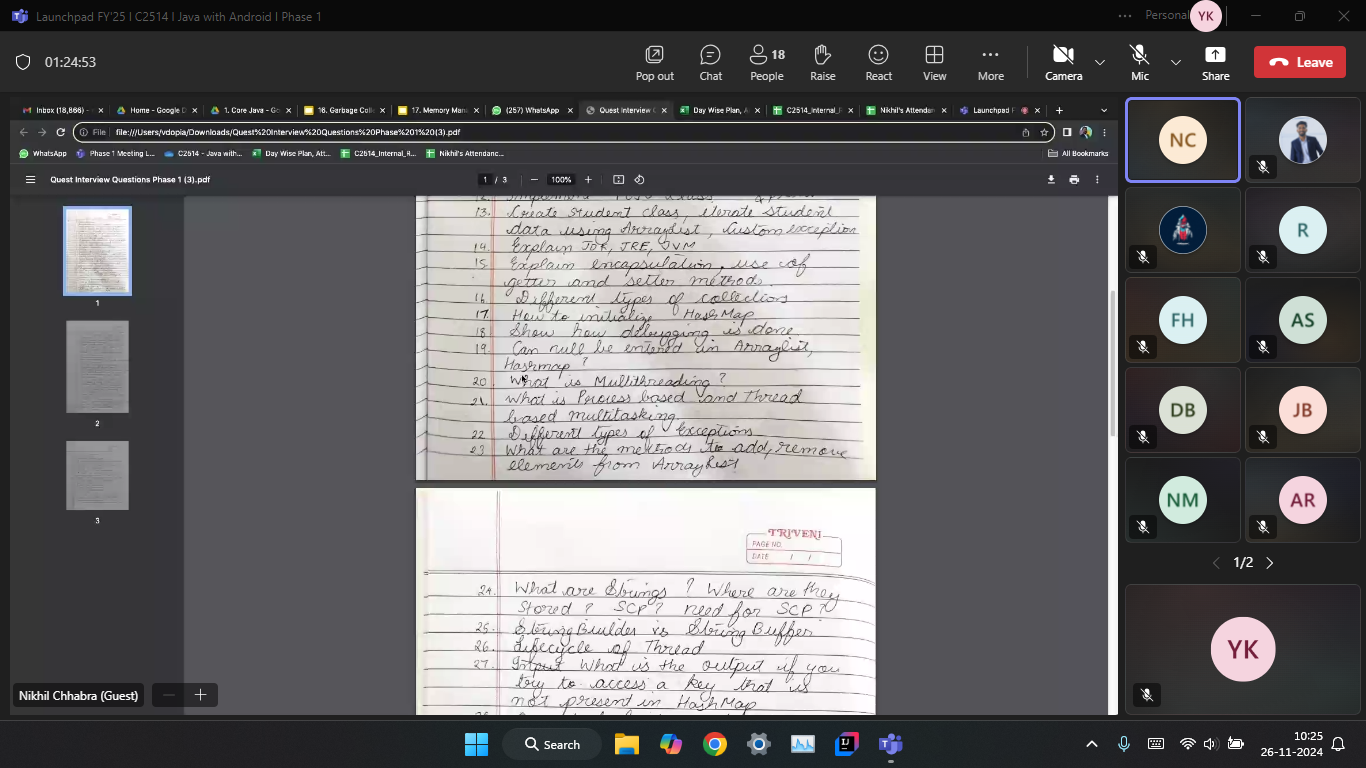 Launchpad FY'25 I C2514 I Java with Android I Phase 1
Personal
YK
01:24:53
Pop out
Chat
18
People
Raise
React
View
More
Camera
Mic
Share
Leave
Inbox (18,866) -
Home - Google D
1. Core Java - Go
16. Garbage Coll
17. Memory Man
(257) WhatsApp
Quest Interview C
Day Wise Plan, A
C2514_Internal_F
Nikhil's Attendan
Launchpad F
File
file:///Users/vdopia/Downloads/Quest%20Interview%20Questions%20Phase%201%20(3).pdf
WhatsApp
Phase 1 Meeting L...
C2514 - Java with...
Day Wise Plan, Att...
C2514_Internal_R...
Nikhil's Attendanc...
All Bookmarks
Quest Interview Questions Phase 1 (3).pdf
1 / 3
100%
1
2
3
13. Create Student class, iterate Student
data using Arraylist, Custom exception
14. Explain JDK, JRE, JVM
15. Explain encapsulation, use of
getter and setter methods.
16. Different types of collections
17. How to initialize HashMap
18. Show how debugging is done
19. Can null be entered in Arraylist,
Hashmap ?
20. What is Multithreading ?
21. What is Process based and Thread
based multitasking.
22. Different types of exceptions
23. What are the methods to add, remove
elements from ArrayList
TRIVENI
PAGE NO.
DATE / /
24. What are Strings ? Where are they
Stored ? SCP ? need for SCP ?
25. StringBuilder vs StringBuffer
26. Lifecycle of Thread
27. What is the output if you
try to access a key that is
not present in HashMap
Nikhil Chhabra (Guest)
NC
R
FH
AS
DB
JB
NM
AR
1/2
YK
Search
10:25
26-11-2024